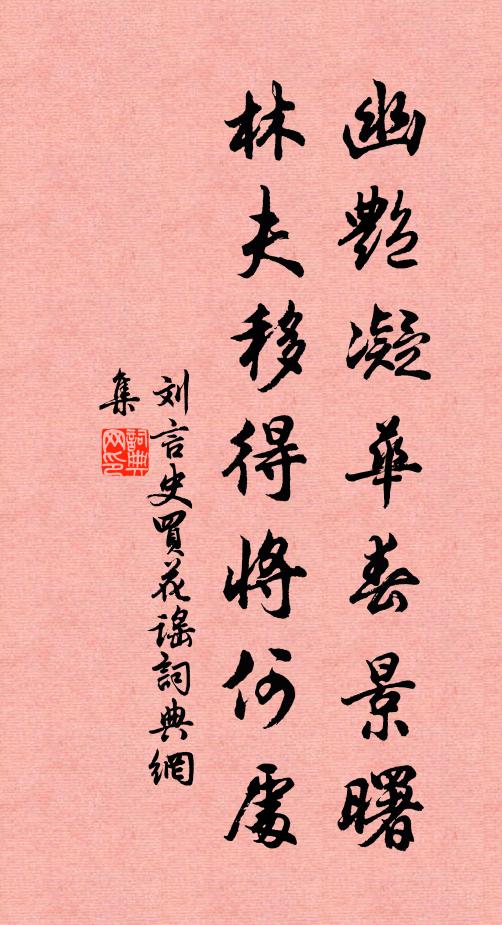 幽艷凝華春景曙
林夫移得將何處
刘言史買花謠詞典網
集
詞典网印